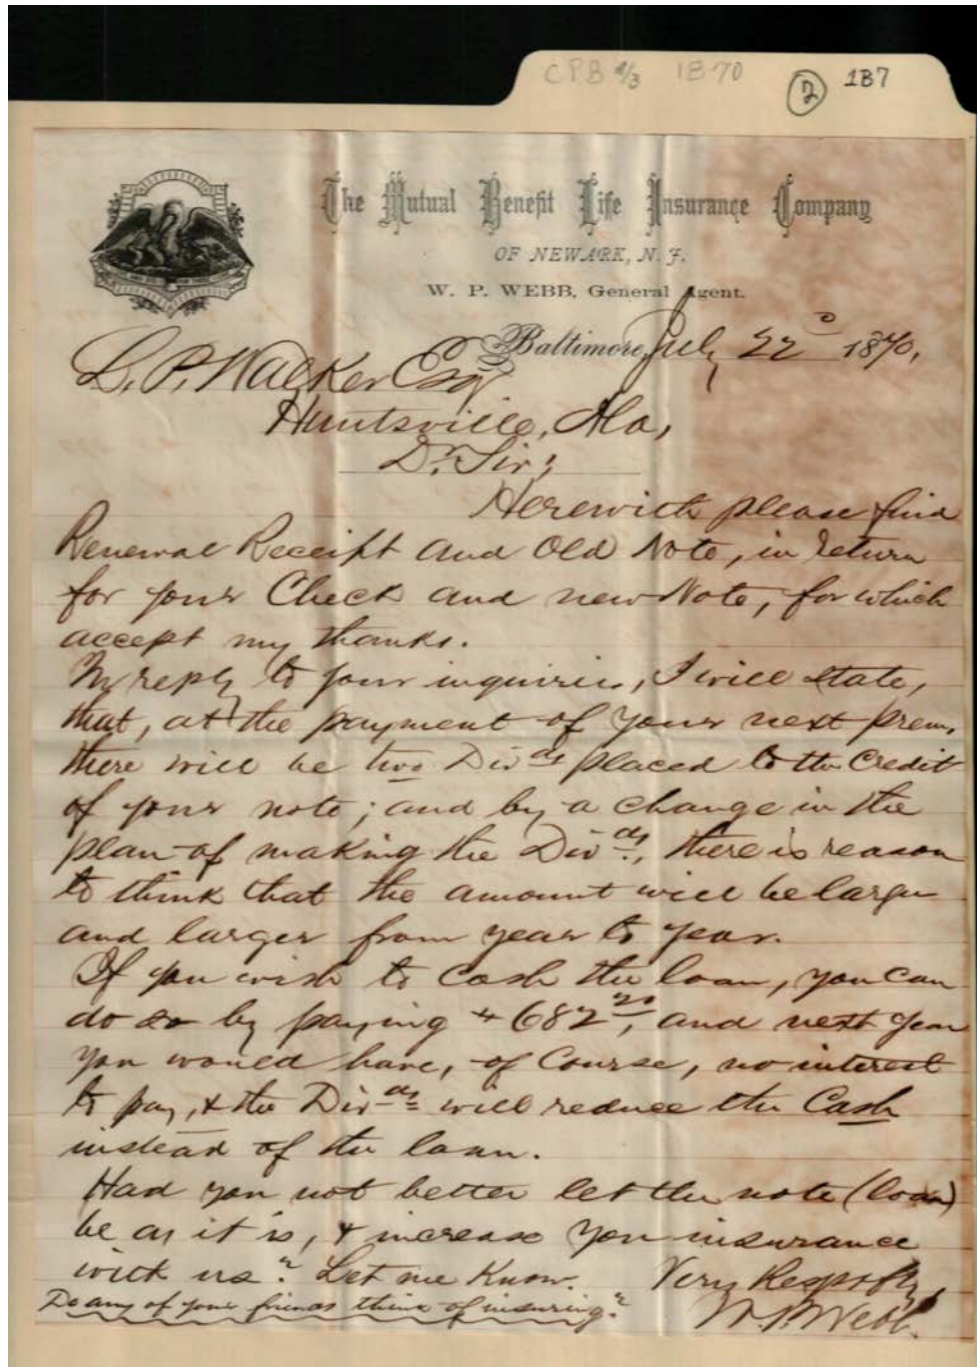 CPB 2/3 1870 2 1B7
The Mutual Benefit Life Insurance Company
OF NEWARK, N. J.
W. P. WEBB, General Agent.
Baltimore, July 22d 1870,
L. P. Walker Esq
Huntsville, Ala,
Dr. Sir;
Herewith please find
Renewal Receipt and Old Note, in return
for your Check and new Note, for which
accept my thanks.
In reply to your inquiries, I will state,
that, at the payment of your next prem,
there will be two Divds placed to the Credit
of your note; and by a change in the
plan of making the Divds, there is reason
to think that the amount will be larger
and larger from year to year.
If you wish to Cash the loan, you can
do so by paying $682 20, and next year
you would have, of Course, no interest
to pay, & the Divds will reduce the Cash
instead of the loan.
Had you not better let the note (loan)
be as it is, & increase your insurance
with us? Let me Know. Very Respctfly,
Do any of your friends think of insuring? W. P. Webb.